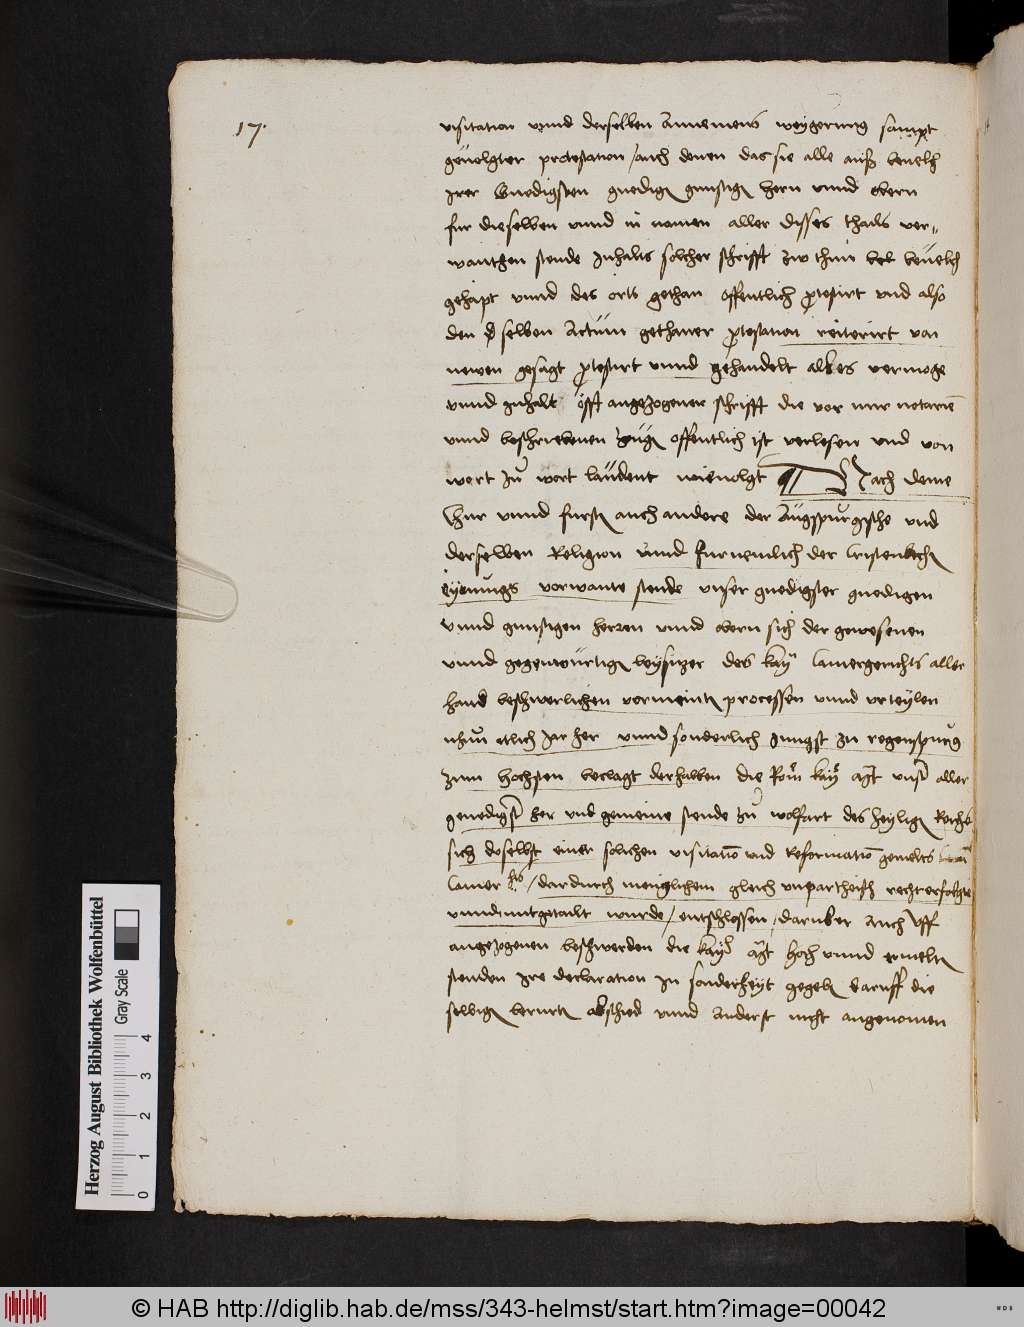 17.
visitation vnnd derselben Annemens weygerung sampt
geuolgter protestation / auch denen das sie alle auß beuelh
irer Gnedigsten gnedigen gunstigen hern vnnd obern
fur dieselben vnnd in namen aller disses thails ver-
wanthen stende Inhalts solcher schrifft zw thun beuelch
gehapt vnnd des orts gethan offentlich protestirt vnd also
den selben Actum gethaner protestation reiterirt von
newen gesagt protestirt vnnd gehandelt alles vermoge
vnnd Inhalt offt angezogener schrifft die vor mir notarien
vnnd beschriebenen zügen offentlich ist verlesen vnd von
wort zu wort laudent wieuolgt Nach deme
Chur vnnd fursten auch andere der Augspurgische vnd
derselben Religion vnnd furnemlich der Cristenlichen
eynungs verwante stende vnser gnedigster gnedigen
vnnd gunstigen herren vnnd obern sich der gewesenen
vnnd gegenwürtigen beysitzer des kay Camergerichts aller
hand beschwerlichen vermeinten processen vnnd vrteylen
nhun etlich jar her vnnd sonderlich Jungst zu regenspurg
zum hochsten beclagt derhalben die Rom kay Mt vnser aller
genedigst her vnd gemeine stende zu wolfart des heyligen Reichs
sich doselbst einer solichen visitation vnd Reformation gemelts
Camer / dardurch meniglichem gleich vnpartheisch recht erfolgte
vnnd mitgetailt wurde / entschlossen / daruber auch Vff
angezogenen beschwerden die kay Mt hoch vnnd ermelten
stenden ire declaration in sonderheyt gegeben daruff die
selbigen berurten abschied vnnd anderst nicht angenomen
Herzog August Bibliothek Wolfenbüttel
Gray Scale
0 1 2 3 4
© HAB http://diglib.hab.de/mss/343-helmst/start.htm?image=00042